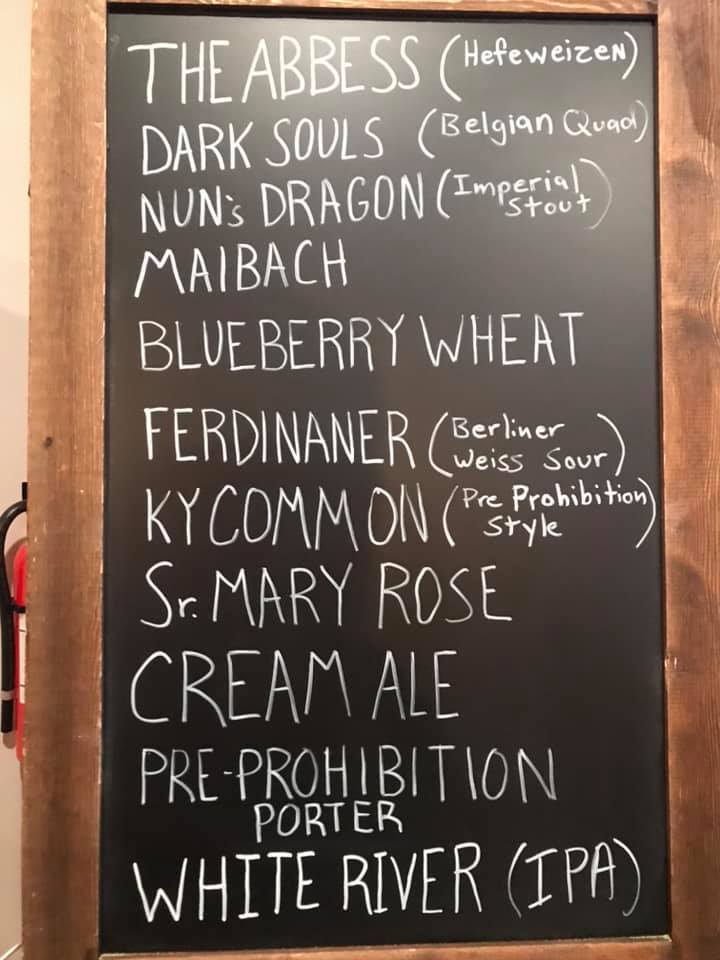 THE ABBESS (Hefeweizen)
DARK SOULS (Belgian Quad)
NUN's DRAGON (Imperial
Stout)
MAIBACH
BLUEBERRY WHEAT
FERDINANER (Berliner
Weiss Sour)
KY COMMON (Pre Prohibition
Style)
Sr. MARY ROSE
CREAM ALE
PRE-PROHIBITION
PORTER
WHITE RIVER (IPA)